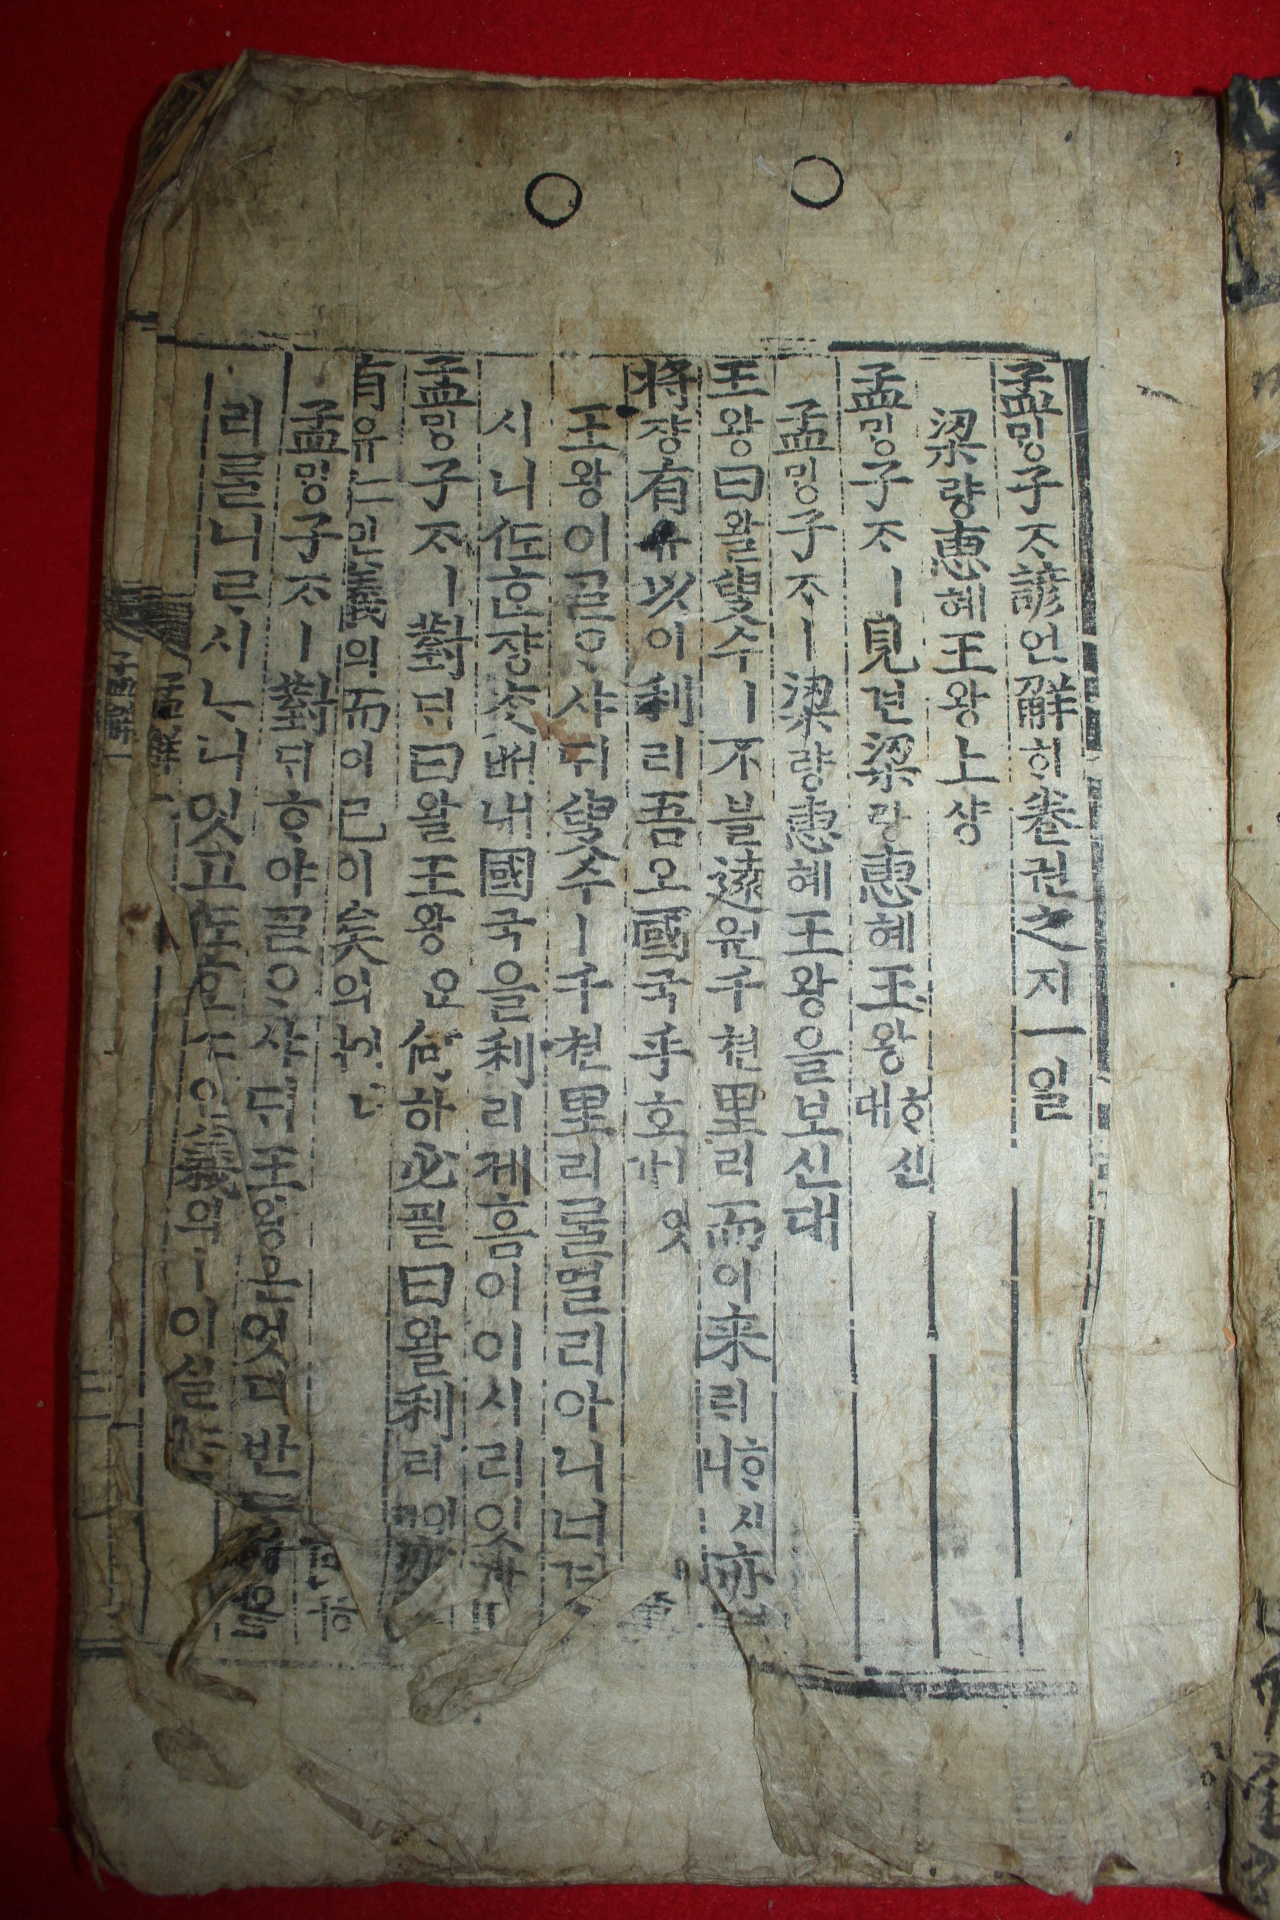 孟ᄆᆡᆼ子ᄌᆞ諺언解ᄒᆡ卷권之지一일
梁량惠혜王왕上샹
孟ᄆᆡᆼ子ᄌᆞㅣ見견梁량惠혜王왕ᄒᆞ신대
孟ᄆᆡᆼ子ᄌᆞㅣ梁량惠혜王왕을보신대
王왕曰왈叟수ㅣ不블遠원千쳔里리而이来ᄅᆡᄒᆞ시니亦
將쟝有유以이利리吾오國국乎호ᄯᅵ잇
王왕이ᄀᆞᆯᄋᆞ샤ᄃᆡ叟수ㅣ千쳔里리ᄅᆞᆯ멀리아니너겨
시니ᄯᅩᄒᆞᆫ쟝ᄎᆞᄡᅥ내國국을利리케흠이이시리잇가
孟ᄆᆡᆼ子ᄌᆞㅣ對ᄃᆡ曰왈王왕ᄋᆞᆫ何하必필曰왈利리
有유仁인義의而이已이矣의니
孟ᄆᆡᆼ子ᄌᆞㅣ對ᄃᆡᄒᆞ야ᄀᆞᆯᄋᆞ샤ᄃᆡ王왕은엇디반
리ᄅᆞᆯ니ᄅᆞ시ᄂᆞ니잇고ᄯᅩᄒᆞᆫ義의ㅣ이실
孟解